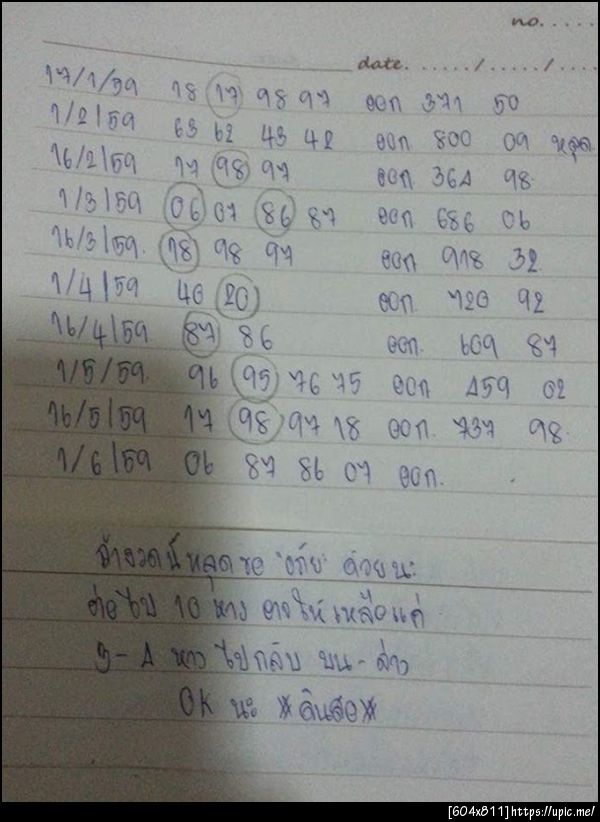 no. . . . . .
date. . . . . . / . . . . . / . . . .
17/1/59 18 17 98 97 ออก 371 50
1/2/59 63 62 43 42 ออก 800 09 หลุด
16/2/59 17 98 97 ออก 364 98
1/3/59 06 07 86 87 ออก 686 06
16/3/59. 18 98 97 ออก 918 32
1/4/59 40 20 ออก. 720 92
16/4/59 87 86 ออก. 609 87
1/5/59. 96 95 76 75 ออก 459 02
16/5/59 17 98 97 18 ออก. 737 98.
1/6/59 06 87 86 07 ออก.
ถ้างวดนี้หลุดขอ "อภัย" ด้วยนะ
ต่อไป 10 หาง อาจให้เหลือแค่
3-4 หาง ไปกลับ บน-ล่าง
OK นะ *ดินสอ*
[604x811]https://upic.me/